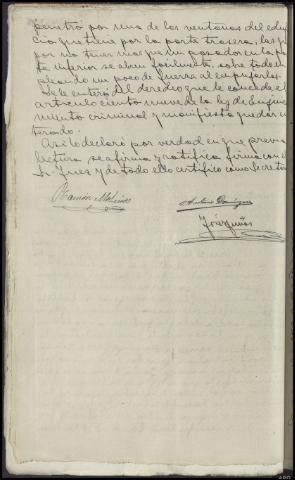 penetró por una de las ventanas del edifi
cio que tiene por la parte trasera, las que
por no tener mas que un pasador en la par
te inferior se abren facilmente, sobre todo em
pleando un poco de fuerza al empujarlas.
Se le enteró del derecho que le concede el
articulo ciento nueve de la ley de Enjuicia
miento criminal y manifiesta quedar en
terado.
Asi lo declaró por verdad en que previa
lectura se afirma y ratifica firma con el
Sr. Juez y de todo ello certifico como Secretario
Ramón
Antonio Dominguez
José Muñoz